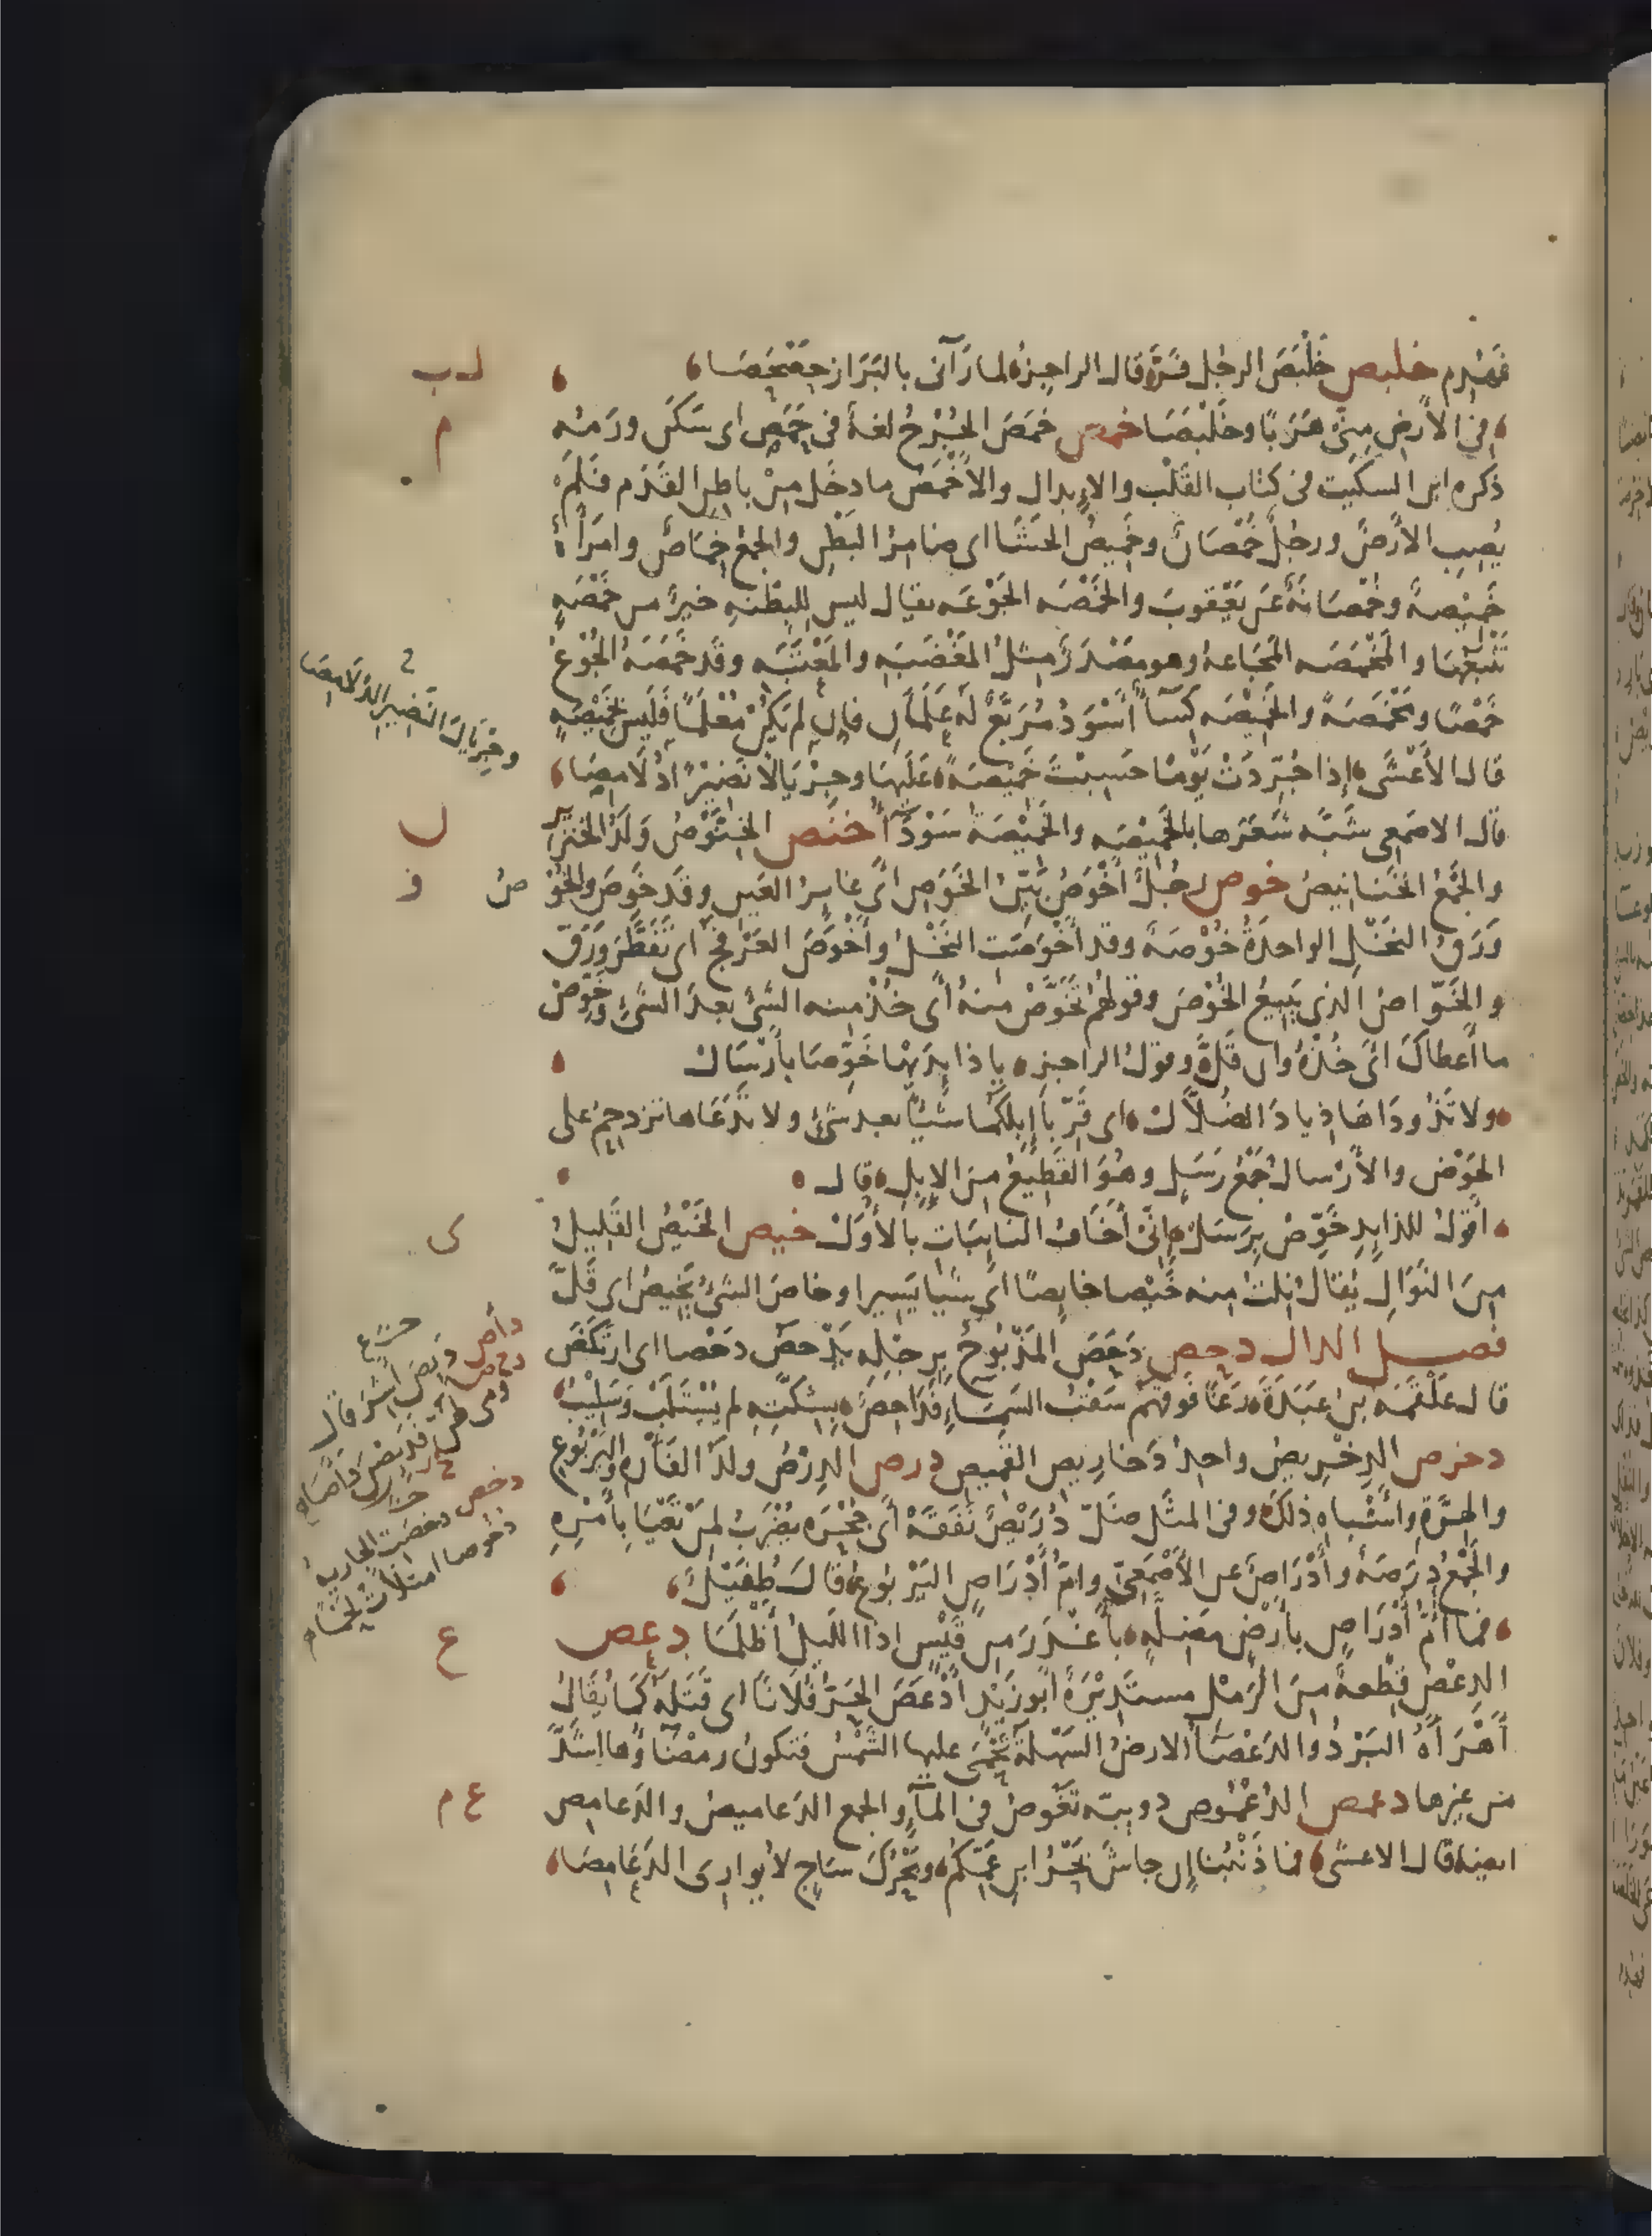 فَهُدِم خلبص خَلْبَصَ الرجُل فَرَّ قال الراجزُ لما رَآنى بالبَرَاز حَصْحَصَا
فى الأرضِ مِنّى هَرَبًا وخَلْبَصَا خمص خَمَصَ الجُرْحُ لغة فى حَمَصَ اى سَكَنَ ورمُه
ذكره ابن السكيت فى كتاب القَلْب والإبدال والأخْمَصُ ما دخَل مِنْ باطِنِ القَدَم فلَمْ
يُصِبِ الأرضَ ورجُلٌ خُمْصَانٌ وخَمِيصُ الحَشَا اى ضامِرُ البَطْنِ والجمْعُ خِمَاصٌ وامْرَأةٌ
خَمِيْصةٌ وخُمْصَانَةٌ عَن يَعْقُوبَ والخَمْصَه الجَوْعَه يقال ليس للبِطْنَهِ خيرٌ من خَمْصَهٍ
تَتْبَعُهَا والمَخْمَصَه المَجَاعهُ وهو مصْدَرٌ مِثلُ المَغْضَبَهِ والمَعْتَبَه وقَد خَمَصَهُ الجُوْعُ
خَمْصًا ومَخْمَصَةً والخَمِيْصَه كِسَآءٌ أسْوَدُ مُرَبَّعٌ لَه عَلَمَانِ فإن لم يَكُنْ مُعْلَمًا فَلَيس بخَمِيْصَهٍ
قال الأَعْشَى إذا جُرِّدَتْ يَوْمًا حَسِبْتَ خَمِيْصَةً عَلَيها وجِرْيالا نَضِيْرًا دُلامِصَا
وجِرْيَالَ النَضِيرِ الدُلامِصَا
قال الاصمعى شَبَّه شَعَرَها بالخَمِيْصَه والخَمِيْصَة سَوْدَآءُ خنص الخِنَّوْصُ وَلَدُ الخِنْزِير
والجَمْعُ الخَنَانِيصُ خوص رجُلٌ أَخْوَصُ بَيِّنُ الخَوَصِ أىْ غايِرُ العَيْنِ وقَد خَوِصَ والخُو صُ
وَرَقُ النَخْلِ الواحِدَةُ خُوْصَةٌ وقد أخْوَصَت النَخْلُ وأَخْوَصَ العَرْفَجُ اى تَفَطَّرَ بِوَرَقٍ
والخَوّاصُ الذى يَبِيعُ الخُوْصَ وقولهُم تَخَوَّصْ منهُ أىْ خذ منه الشىْ بعدَ الشَىْءِ وخَوِّصْ
ما أعطاكَ اىْ خُذْهُ وان قَلَّ وقول الراجز يا ذايِدَيْها خَوِّصَا بأرْسَالْ
ولا تَذُودَاهَا ذِيادَ الضُلاَّلْ اى قَرِّبا إبِلَكُما شيئًا بعد شَىْءٍ ولا تَدَعَاها تزدحِمْ على
الحَوْض والأرْسال جَمْعُ رَسَلٍ وهُوَ القَطِيعُ مِنَ الإبِلِ قال
أقولُ للذايِدِ خَوِّصْ بِرَسَلْ إنّى أخَافُ النايِبَاتِ بالأُوَلْ خيص الخَيْصُ القَلِيلُ
مِنَ النَوَالِ يُقالُ نِلتُ منه خَيْصا خايِصًا أى شيئا يَسِيرا وخاصَ الشىْءُ يَخِيصُ اى قَلَّ
فصل الدال دحص دَحَصَ المَذْبُوحُ بِرِجْلِهِ يَدْحصُ دَحْصا اى ارتَكَضَ
قال عَلْقَمَه بن عَبَدَةَ رَغَا فَوقَهُمْ سَقْبُ السَمَاءِ فَدَاحِصٌ بِشِكَّتِهِ لم يُسْتَلَبْ وسَلِيْبُ
دخرص الدِخْرِيصُ واحِدُ دَخارِيصِ القَمِيصِ درص الدِرْصُ ولَدُ الفَأرَهِ واليَرْبُوعِ
والهِرَّةِ وأشْباهِ ذلكَ وفى المثَلِ ضَلّ دُرَيْصٌ نَفَقَهْ أى جُحْرَه يضْرَبُ لمن يَعْيَا بِأَمْرِهِ
والجَمْعُ دِرَصَةٌ وأَدْرَاصٌ عن الأصْمَعِىّ وامُّ أَدْرَاصٍ اليَرْبوعُ قال طُفَيْلٌ
فما أُمُّ أَدْرَاصٍ بأرْضٍ مَضَلَّهٍ بأغْدَرَ مِن قَيْسٍ اذا الليلُ أَظْلَمَا دعص
الدِعْصُ قِطْعةٌ مِنَ الرَمْل مستَدِيْرَةٌ أبو زَيْدٍ أَدْعَصَ الحَرُّ فُلَانًا اى قَتَلَه كَمَا يُقَالُ
أَهْرَأَهُ البَرْدُ والدَعْصَآءُ الارضُ السَهْلَة تَحْمَى عليها الشَمْسُ فتكون رمْضآؤُها أشَدَّ
من غيرها دعمص الدُعْمُوص دويبّه تَغُوصُ فى المآءِ والجمع الدَعاميصُ والدَعامِص
ايضا قال الاعشى فما ذَنْبُنا إن جاشَ بَحْرُ ابنِ عَمِّكمْ وبَحْرُكَ سَاجٍ لا يُوارِى الدَعَامِصَا
ل ب
م
ل
و
ى
ع
ع م
دأص دَئِصَ أشِرَ قال
دخص دخصت الجارية
دُخُوصا امتلأت لحما